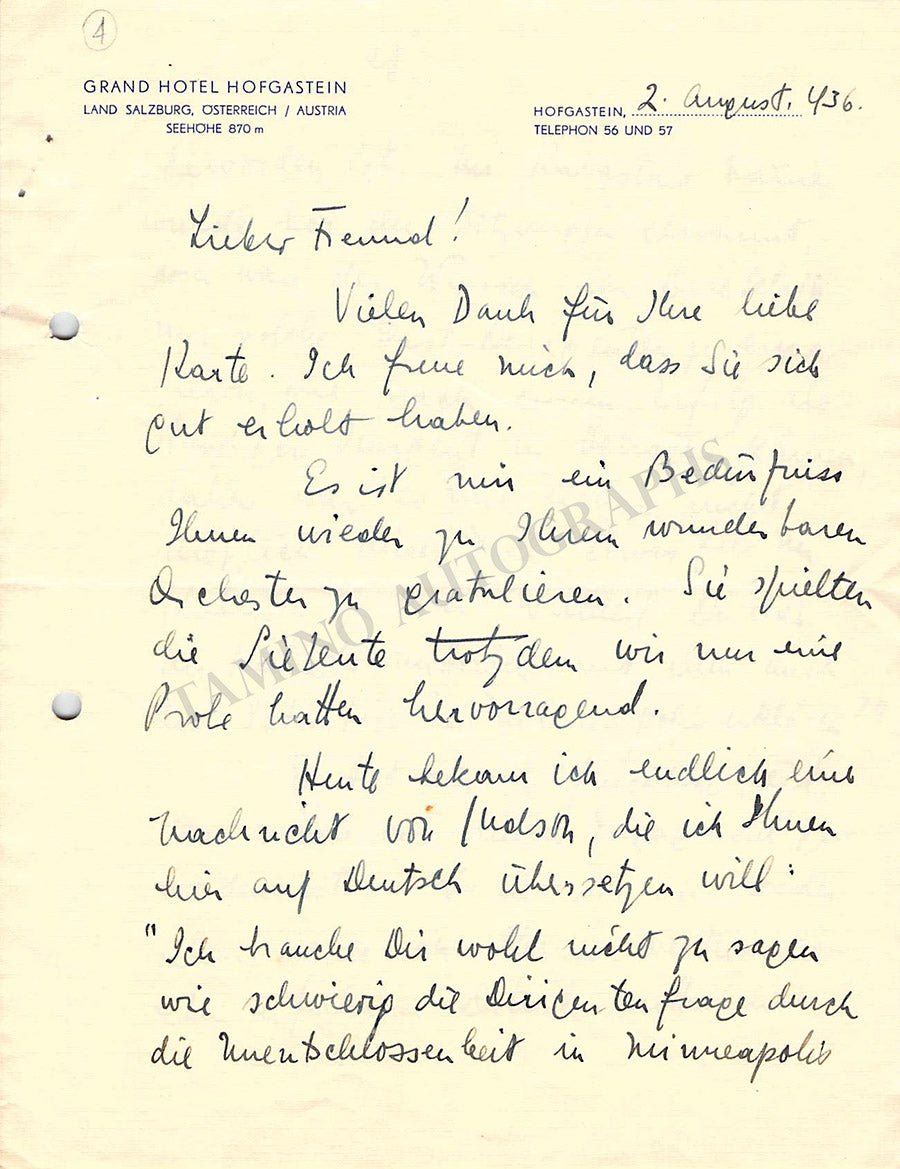 4
GRAND HOTEL HOFGASTEIN
LAND SALZBURG, ÖSTERREICH / AUSTRIA
SEEHÖHE 870 m
HOFGASTEIN, 2. August. 936.
TELEPHON 56 UND 57
Lieber Freund!
Vielen Dank für Ihre liebe
Karte. Ich freue mich, dass Sie sich
gut erholt haben.
Es ist mir ein Bedürfniss
Ihnen wieder zu Ihrem wunderbaren
Orchester zu gratulieren. Sie spielten
die Siebente trotzdem wir nur eine
Probe hatten hervorragend.
Heute bekam ich endlich eine
Nachricht von Judson, die ich Ihnen
hier auf Deutsch übersetzen will:
"Ich brauche Dir wohl nicht zu sagen
wie schwierig die Dirigentenfrage durch
die Unentschlossenheit in Minneapolis
TAMINO AUTOGRAPHS